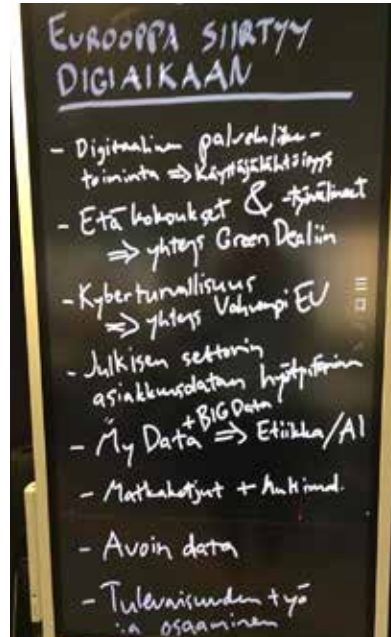 EUROOPPA SIIRTYY
DIGIAIKAAN
- Digitaalinen palveluliike-
toiminta => Käyttäjälähtöisyys
- Etäkokoukset & -työvälineet
=> yhteys Green Dealiin
- Kyberturvallisuus
=> yhteys Vahvempi EU
- Julkisen sektorin
asiakkuusdatan
- My Data + BIG Data => Etiikka/AI
- Matkaketjut +
- Avoin data
- Tulevaisuuden työ
ja osaaminen